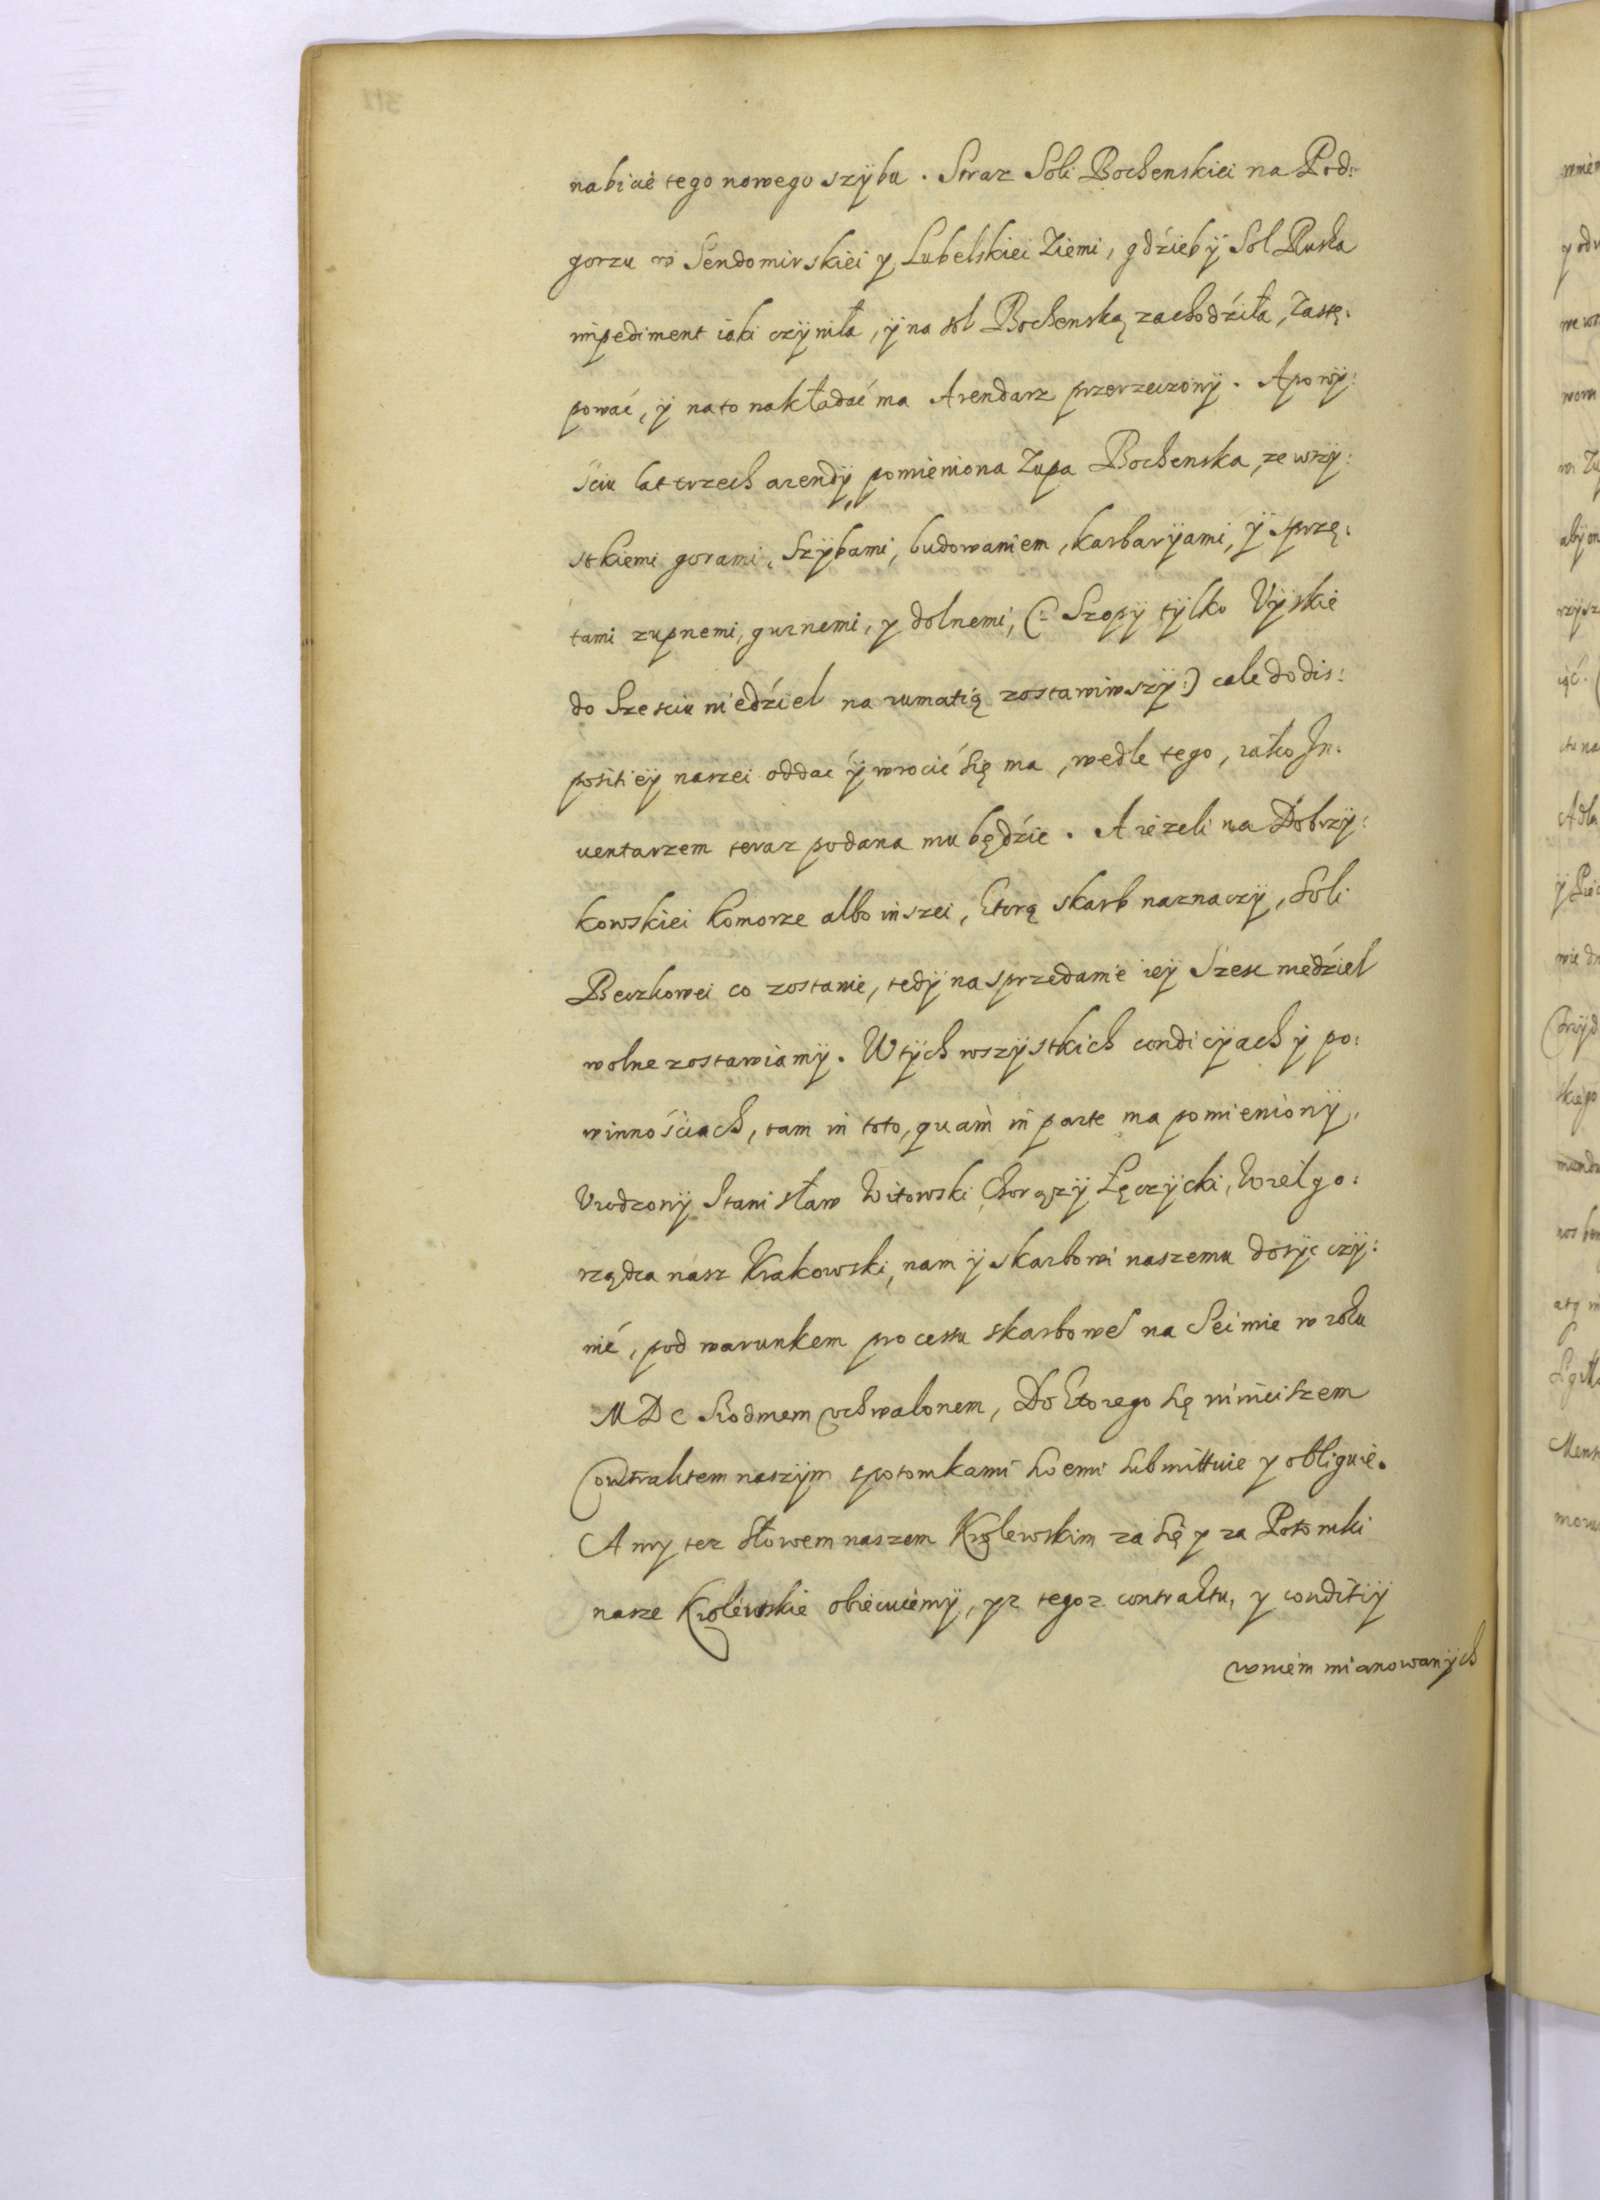 nabicie tego nowego szÿbu. Straz Soli Bochenskiei na Pod:
gorzu w Sendomirskiei y Lubelskiei Ziemi, gdzieb ÿ Sol Ruska
impediment iaki czÿniła, ÿ na sol Bochenską zachodźiła, Zastę:
pować, ÿ na to nakładać ma Arendarz przerzeczonÿ. A po wÿ:
ściu lat trzech arendÿ, pomieniona Zupa Bochenska, ze wszÿ:
stkiemi gorami, Szÿbami, budowaniem, karbarÿami, ÿ sprzę:
tami zupnemi, gurnemi, y dolnemi, (: Szopÿ tÿlko Uÿskie
do Szesciu niedźiel na rumatią zostawiwszÿ:) cale do dis:
positiëÿ naszei oddać ÿ wrocić się ma, wedle tego, iako In:
uentarzem teraz podana mu będźie. A ieżeli na Dobrzÿ:
kowskiei komorze albo inszei, ktorą skarb naznaczÿ, Soli
Beczkowei co zostanie, tedÿ na sprzedanie ieÿ Szesc niedźiel
wolne zostawiamÿ. W tÿch wszÿstkich condicÿach ÿ po:
winnościach, tam in toto, quam in parte ma pomienionÿ,
Urodzonÿ Stanisław Witowski Chorązÿ Łęczÿcki, Wielgo:
rządca nasz Krakowski, nam ÿ skarbowi naszemu dosÿc czÿ:
nić, pod warunkem processu skarbowe na Seimie w roku
MDC siodmem uchwalonem, Do ktorego się ninieiszem
Contraktem naszÿm spotomkami swemi submittuie y obliguie.
A my tez słowem naszem Krolewskim za się y za Potomki
nasze Krolewskie obiecuiemÿ, yz tegoz contraktu, y conditiÿ
wniem mianowanÿch